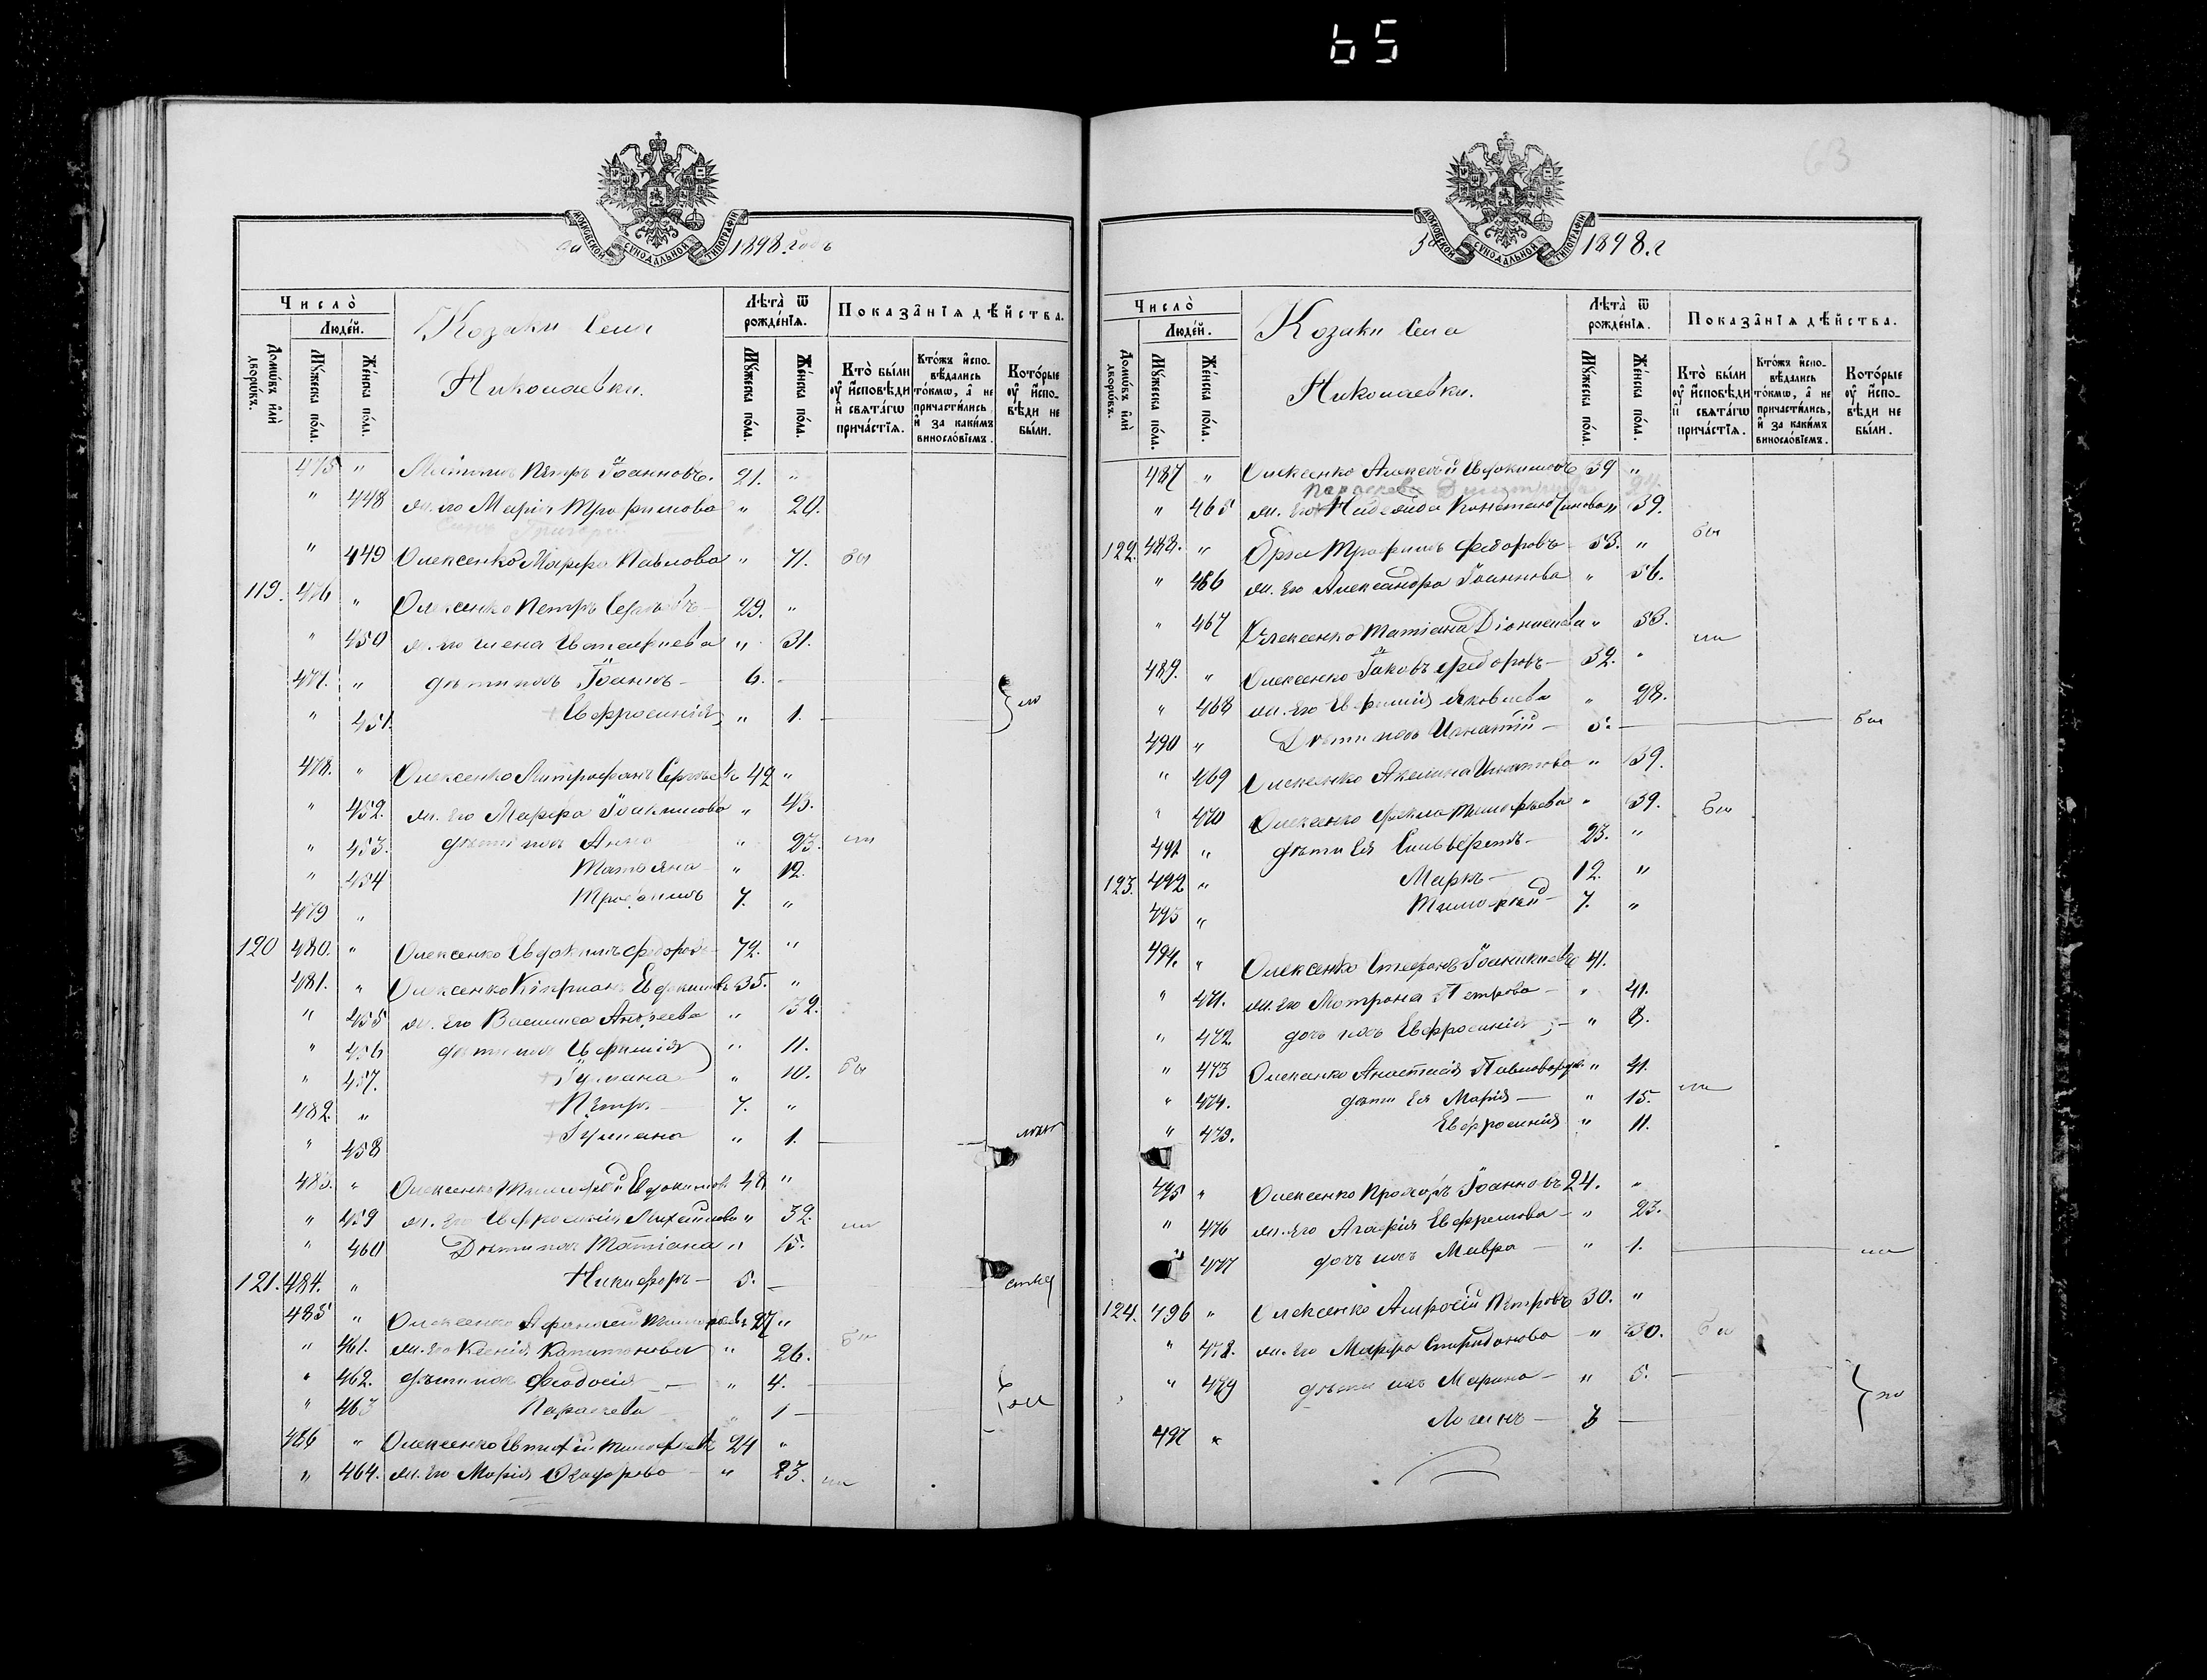 65
63
МОСКОВСКОЙ СѴНОДАЛЬНОЙ ТИПОГРАФІИ
1898. годъ
Число̀
Люде́й.
Домѡ́въ и҆лѝ дворѡ́въ.
Мꙋ́жеска по́ла.
Же́нска по́ла.
Козаки Села
Николаевки.
Лѣта̀ ѿ рожде́нїѧ.
Мꙋ́жеска по́ла.
Же́нска по́ла.
Показа̂нїѧ дѣ́йства.
Кто̀ бы́ли оу҆ и҆сповѣ́ди и҆ свѧта́гѡ прича́стїѧ.
Кто́жъ и҆спо-вѣ́дались то́кмѡ, а҆ не причасти́лись, и҆ за каки́мъ виносло́вїемъ.
Кото́рые оу҆ и҆спо-вѣ́ди не бы́ли.
475 " Петръ Іоанновъ. 21. "
" 448 ж. его Марія Трофимова " 20.
" 449 Олексенко Марфа Павлова " 71. бы
119. 476 " Олексенко Петръ Сергѣевъ 29. "
" 450 ж. его Елена Евстафиева " 31.
477. " дѣти ихъ Іоаннъ 6. —
" 451. Евфросинія " 1. —
478. " Олексенко Митрофанъ Сергѣевъ 49 "
" 452. ж. его Марфа Іоакимова " 45.
" 453. дѣти ихъ Анна " 23.
" 454 Татьяна " 12.
479 " Трофимъ 7. "
120 480. " Олексенко Евдокимъ Федоровъ 72. "
481. " Олексенко Кипріанъ Евдокимовъ 35. "
" 455 ж. его Василиса Андреева " 32.
" 456 дѣти ихъ Евфимія " 11.
" 457. Іуліана " 10. бы
482. " Петръ 7. "
" 458 Іуліана " 1. —
483. " Олексенко Тимофей Евдокимовъ 48 "
" 459 ж. его Евфросинія Михайлова " 39.
" 460 Дѣти ихъ Татіана " 15.
121. 484. " Никифоръ 5. —
485 " Олексенко Афанасій Тимофеевъ 27 "
" 461. ж. его Ксенія Капитонова " 26.
" 462. дѣти ихъ Феодосія " 4. —
" 463 Параскева " 1 —
486 " Олексенко Евтихій Тимофеевъ 24 "
" 464. ж. его Марія " 23.
МОСКОВСКОЙ СѴНОДАЛЬНОЙ ТИПОГРАФІИ
За 1898. г
Число̀
Люде́й.
Домѡ́въ и҆лѝ дворѡ́въ.
Мꙋ́жеска по́ла.
Же́нска по́ла.
Козаки Села
Николаевки.
Лѣта̀ ѿ рожде́нїѧ.
Мꙋ́жеска по́ла.
Же́нска по́ла.
Показа̂нїѧ дѣ́йства.
Кто̀ бы́ли оу҆ и҆сповѣ́ди и҆ свѧта́гѡ прича́стїѧ.
Кто́жъ и҆спо-вѣ́дались то́кмѡ, а҆ не причасти́лись, и҆ за каки́мъ виносло́вїемъ.
Кото́рые оу҆ и҆спо-вѣ́ди не бы́ли.
487 " Олексенко Алексѣй Евдокимовъ 39 "
Параскева Димитріева 24
" 465 ж. его Надежда Константинова " 39.
122. 488. " Трофимъ Федоровъ 53. " бы
" 466 ж. его Александра Іоаннова " 56.
" 467 Олексенко Татіана Діонисиева " 53.
489. " Олексенко Іаковъ Федоровъ 32. "
" 468 ж. его Евфимія Яковлева " 28.
490 " Дѣти ихъ Игнатій 5. — бы
" 469 Олексенко Акилина Игнатова " 39.
" 470 Олексенко Фекла Тимофеева " 39. бы
491 " дѣти ея Сильвестръ 23. "
123. 492 " Маркъ 12. "
493 " Тимофей 7. "
494. " Олексенко Стефанъ Іоанникиевъ 41.
" 471. ж. его Матрона Петрова " 41.
" 472 дочь ихъ Евфросинія " 8.
" 473 Олексенко Анастасія Павлова " 41.
" 474. дѣти ея Марія " 15.
" 475. Евфросинія " 11.
495 " Олексенко Прохоръ Іоанновъ 24. "
" 476 ж. его Агафія Евфремова " 23.
" 477 дочь ихъ Мавра " 1.
124. 496 " Олексенко Амросій Петровъ 30. "
" 478. ж. его Марфа Спиридонова " 30. бы
" 479 дѣти ихъ Марина " 5. —
497 " Логинъ 3 —